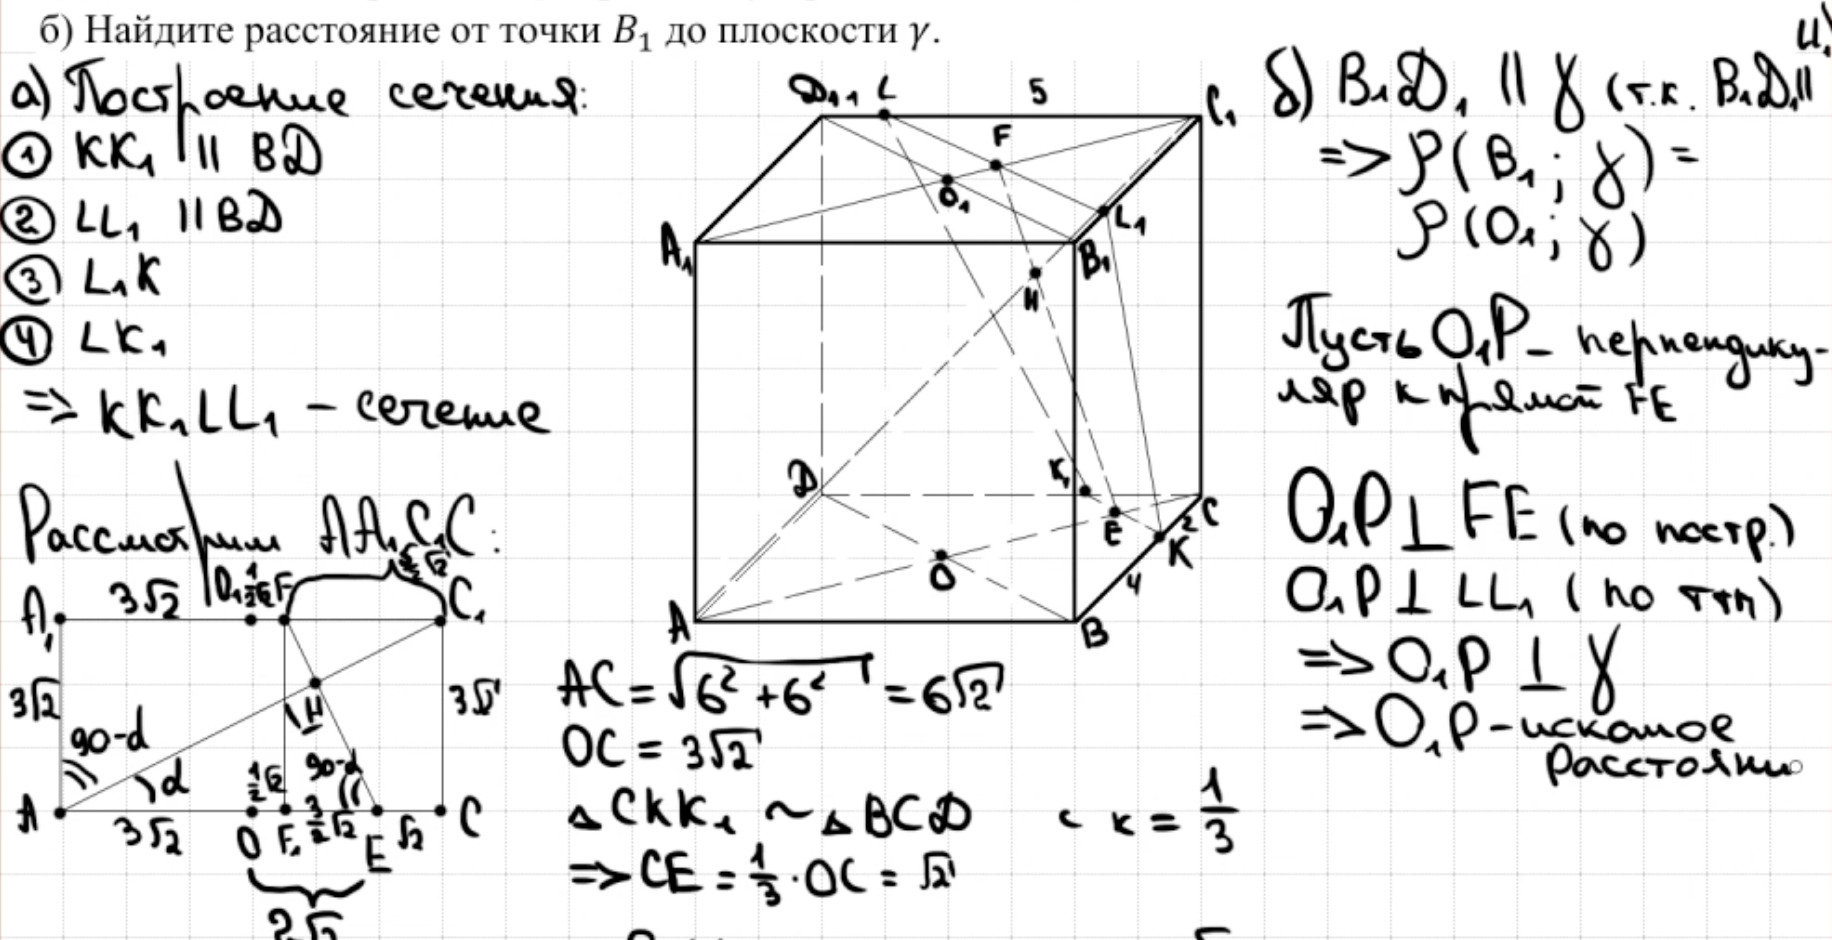 б) Найдите расстояние от точки B₁ до плоскости γ.
а) Построение сечения:
① KK₁ || BD
② LL₁ || BD
③ L₁K
④ LK₁
=> KK₁LL₁ – сечение
Рассмотрим AA₁C₁C:
A₁ 3√2 O₁ 1/2√2 F 5/2√2 C₁
3√2 3√2
90-α
α
H
1/2√2 90-α
A 3√2 O F₁ 3/2√2 E √2 C
2√2
D₁ 1 L 5 C₁
F
O₁ L₁
A₁ B₁
H
D K₁ E 2 C
K
O 4
A B
AC = √6² + 6² = 6√2
OC = 3√2
△CKK₁ ~ △BCD с k = 1/3
=> CE = 1/3 · OC = √2
б) B₁D₁ || γ (т.к. B₁D₁ ||
=> ρ(B₁; γ) =
ρ(O₁; γ)
Пусть O₁P – перпендику-
ляр к прямой FE
O₁P ⊥ FE (по постр.)
O₁P ⊥ LL₁ (по ттп)
=> O₁P ⊥ γ
=> O₁P – искомое
расстояние